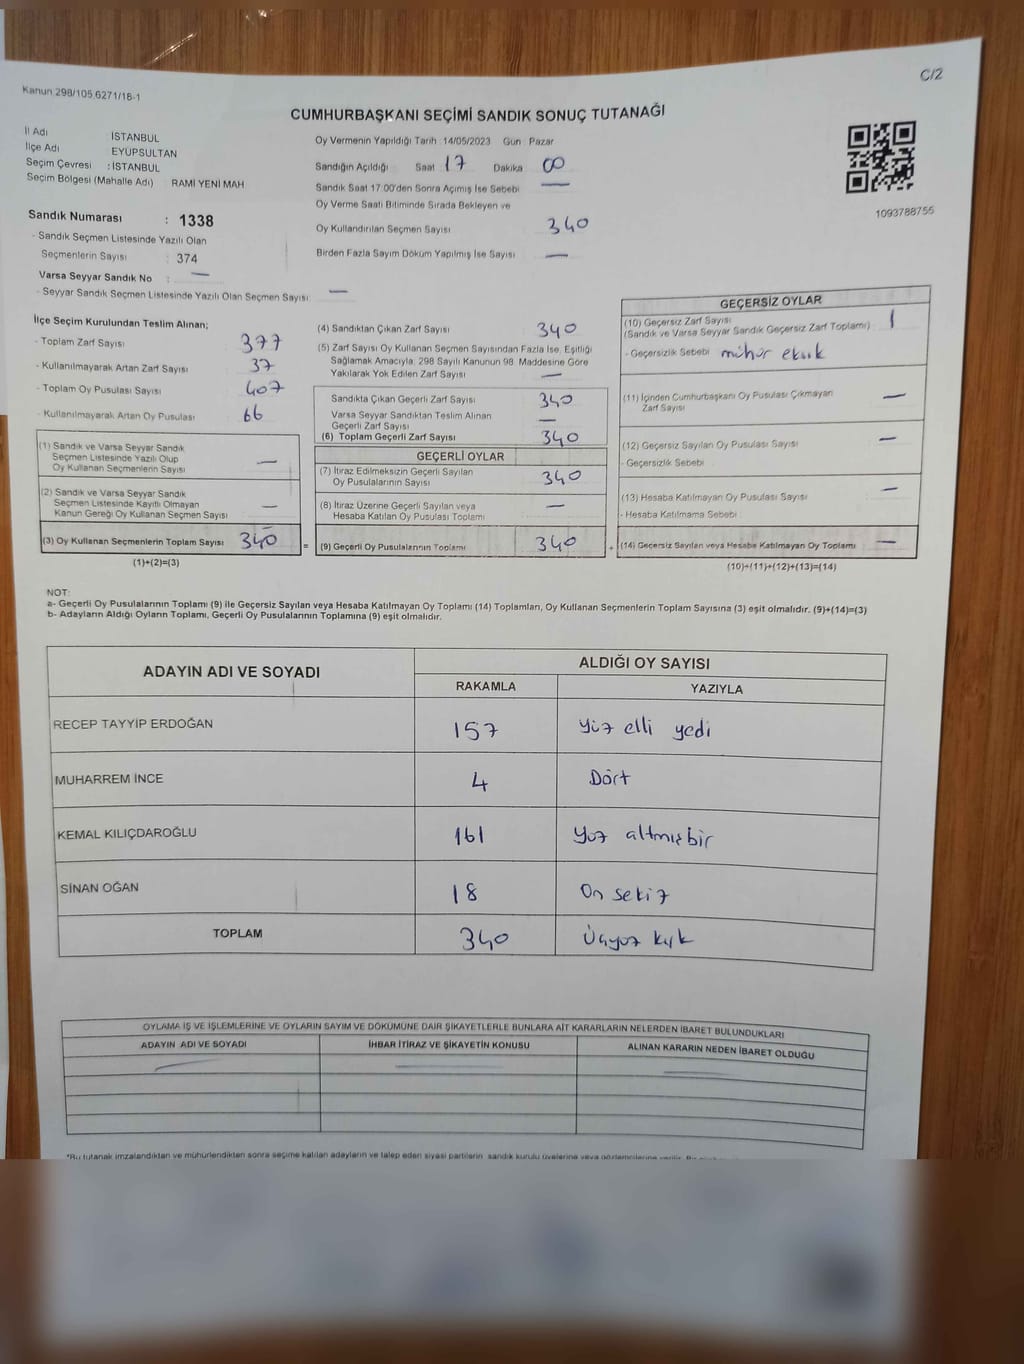 C/2
Kanun 298/105,6271/18-1
CUMHURBAŞKANI SEÇİMİ SANDIK SONUÇ TUTANAĞI
İl Adı : İSTANBUL
İlçe Adı : EYÜPSULTAN
Seçim Çevresi : İSTANBUL
Seçim Bölgesi (Mahalle Adı) RAMİ YENİ MAH
Oy Vermenin Yapıldığı Tarih 14/05/2023 Gün Pazar
Sandığın Açıldığı Saat 17 Dakika 00
Sandık Saat 17.00'den Sonra Açımış İse Sebebi —
Oy Verme Saati Bitiminde Sırada Bekleyen ve
Oy Kullandırılan Seçmen Sayısı 340
Birden Fazla Sayım Döküm Yapılmış İse Sayısı —
1093788755
Sandık Numarası : 1338
- Sandık Seçmen Listesinde Yazılı Olan
Seçmenlerin Sayısı : 374
Varsa Seyyar Sandık No : —
- Seyyar Sandık Seçmen Listesinde Yazılı Olan Seçmen Sayısı: —
İlçe Seçim Kurulundan Teslim Alınan;
- Toplam Zarf Sayısı 377
- Kullanılmayarak Artan Zarf Sayısı 37
- Toplam Oy Pusulası Sayısı 407
- Kullanılmayarak Artan Oy Pusulası 66
(1) Sandık ve Varsa Seyyar Sandık
Seçmen Listesinde Yazılı Olup
Oy Kullanan Seçmenlerin Sayısı —
(2) Sandık ve Varsa Seyyar Sandık
Seçmen Listesinde Kayıtlı Olmayan
Kanun Gereği Oy Kullanan Seçmen Sayısı —
(3) Oy Kullanan Seçmenlerin Toplam Sayısı 340 =
(1)+(2)=(3)
(4) Sandıktan Çıkan Zarf Sayısı 340
(5) Zarf Sayısı Oy Kullanan Seçmen Sayısından Fazla İse, Eşitliği
Sağlamak Amacıyla, 298 Sayılı Kanunun 98. Maddesine Göre
Yakılarak Yok Edilen Zarf Sayısı —
Sandıkta Çıkan Geçerli Zarf Sayısı 340
Varsa Seyyar Sandıktan Teslim Alınan
Geçerli Zarf Sayısı —
(6) Toplam Geçerli Zarf Sayısı 340
GEÇERLİ OYLAR
(7) İtiraz Edilmeksizin Geçerli Sayılan
Oy Pusulalarının Sayısı 340
(8) İtiraz Üzerine Geçerli Sayılan veya
Hesaba Katılan Oy Pusulası Toplamı —
(9) Geçerli Oy Pusulalarının Toplamı 340 +
GEÇERSİZ OYLAR
(10) Geçersiz Zarf Sayısı
(Sandık ve Varsa Seyyar Sandık Geçersiz Zarf Toplamı) 1
- Geçersizlik Sebebi mühür eksik
(11) İçinden Cumhurbaşkanı Oy Pusulası Çıkmayan
Zarf Sayısı —
(12) Geçersiz Sayılan Oy Pusulası Sayısı —
- Geçersizlik Sebebi
(13) Hesaba Katılmayan Oy Pusulası Sayısı —
- Hesaba Katılmama Sebebi
(14) Geçersiz Sayılan veya Hesaba Katılmayan Oy Toplamı —
(10)+(11)+(12)+(13)=(14)
NOT:
a- Geçerli Oy Pusulalarının Toplamı (9) ile Geçersiz Sayılan veya Hesaba Katılmayan Oy Toplamı (14) Toplamları, Oy Kullanan Seçmenlerin Toplam Sayısına (3) eşit olmalıdır. (9)+(14)=(3)
b- Adayların Aldığı Oyların Toplamı, Geçerli Oy Pusulalarının Toplamına (9) eşit olmalıdır.
ADAYIN ADI VE SOYADI ALDIĞI OY SAYISI
RAKAMLA YAZIYLA
RECEP TAYYİP ERDOĞAN 157 yüz elli yedi
MUHARREM İNCE 4 Dört
KEMAL KILIÇDAROĞLU 161 Yüz altmışbir
SİNAN OĞAN 18 On sekiz
TOPLAM 340 Üçyüz kırk
OYLAMA İŞ VE İŞLEMLERİNE VE OYLARIN SAYIM VE DÖKÜMÜNE DAİR ŞİKAYETLERLE BUNLARA AİT KARARLARIN NELERDEN İBARET BULUNDUKLARI
ADAYIN ADI VE SOYADI İHBAR İTİRAZ VE ŞİKAYETİN KONUSU ALINAN KARARIN NEDEN İBARET OLDUĞU
*Bu tutanak imzalandıktan ve mühürlendikten sonra seçime katılan adayların ve talep eden siyasi partilerin sandık kurulu üyelerine veya gözlemcilerine verilir.